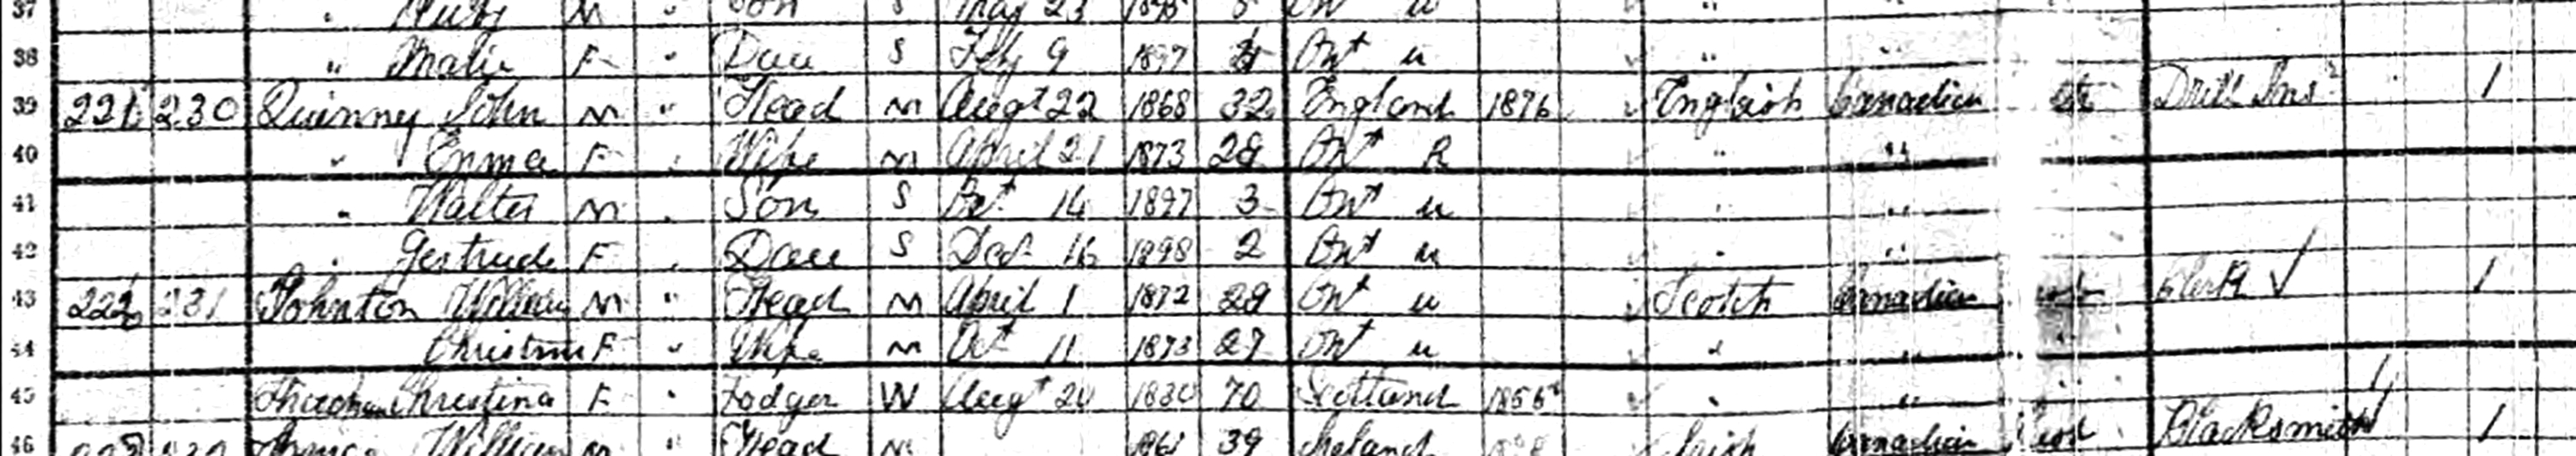 37 " Ruby M " Son S May 23 1895 5 Ont u " "
38 " F " Dau S Feby 9 1897 4 Ont u " "
39 221 230 Quinney John M " Head M Augt 22 1868 32 England 1876 English Canadian Drill Ins 1
40 " Emma F " Wife M April 21 1873 28 Ont R " "
41 " Walter M " Son S Oct 14 1897 3 Ont u " "
42 " Gertrude F " Dau S Dec 16 1898 2 Ont u " "
43 222 231 Johnton William M " Head M April 1 1872 29 Ont u Scotch Canadian Clerk ✓ 1
44 F " Wife M Oct 11 1873 27 Ont u " "
45 Christina F " Lodger W Augt 20 1830 70 Scotland 1856 " "
46 William M " Head M 1861 39 Ireland Irish Canadian Blacksmith 1